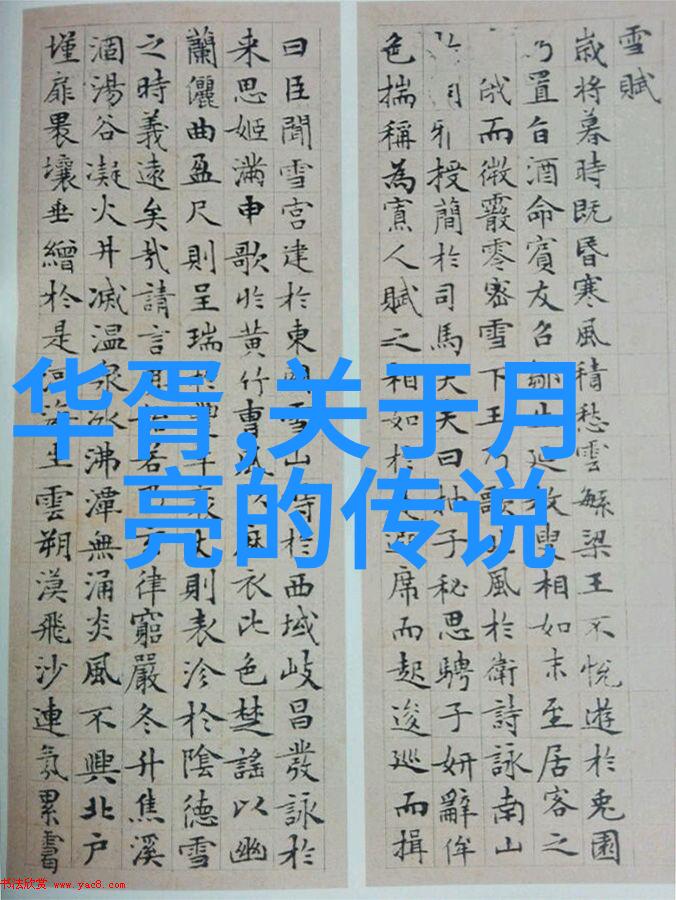 雪賦
歲将暮時既昏寒風積愁雲繁梁王不悅遊於兎園
乃置旨酒命賓友召鄒生延枚叟相如末至居客之
俄而微霰零密雪下王乃歌北風於衛詩詠南山
授簡於司馬大夫曰抽子秘思騁子妍辭侔
色揣稱為寡人賦之相如於是避席而起逡巡而揖
曰臣聞雪宮建於東國雪山峙於西域岐昌發詠於
来思姬滿申歌於黄竹曹風以麻衣比色楚謠以幽
蘭儷曲盈尺則呈瑞於豐年袤丈則表沴於陰德雪
之時義遠矣哉請言其始若乃玄律窮嚴冬升焦溪
涸湯谷凝火井滅温泉冰沸潭無涌炎風不興北户
墐扉裸壤垂繒於是河海生雲朔漠飛沙連氛累靄
华胥,关于月
亮的传说
书法欣赏 www.yac8.com